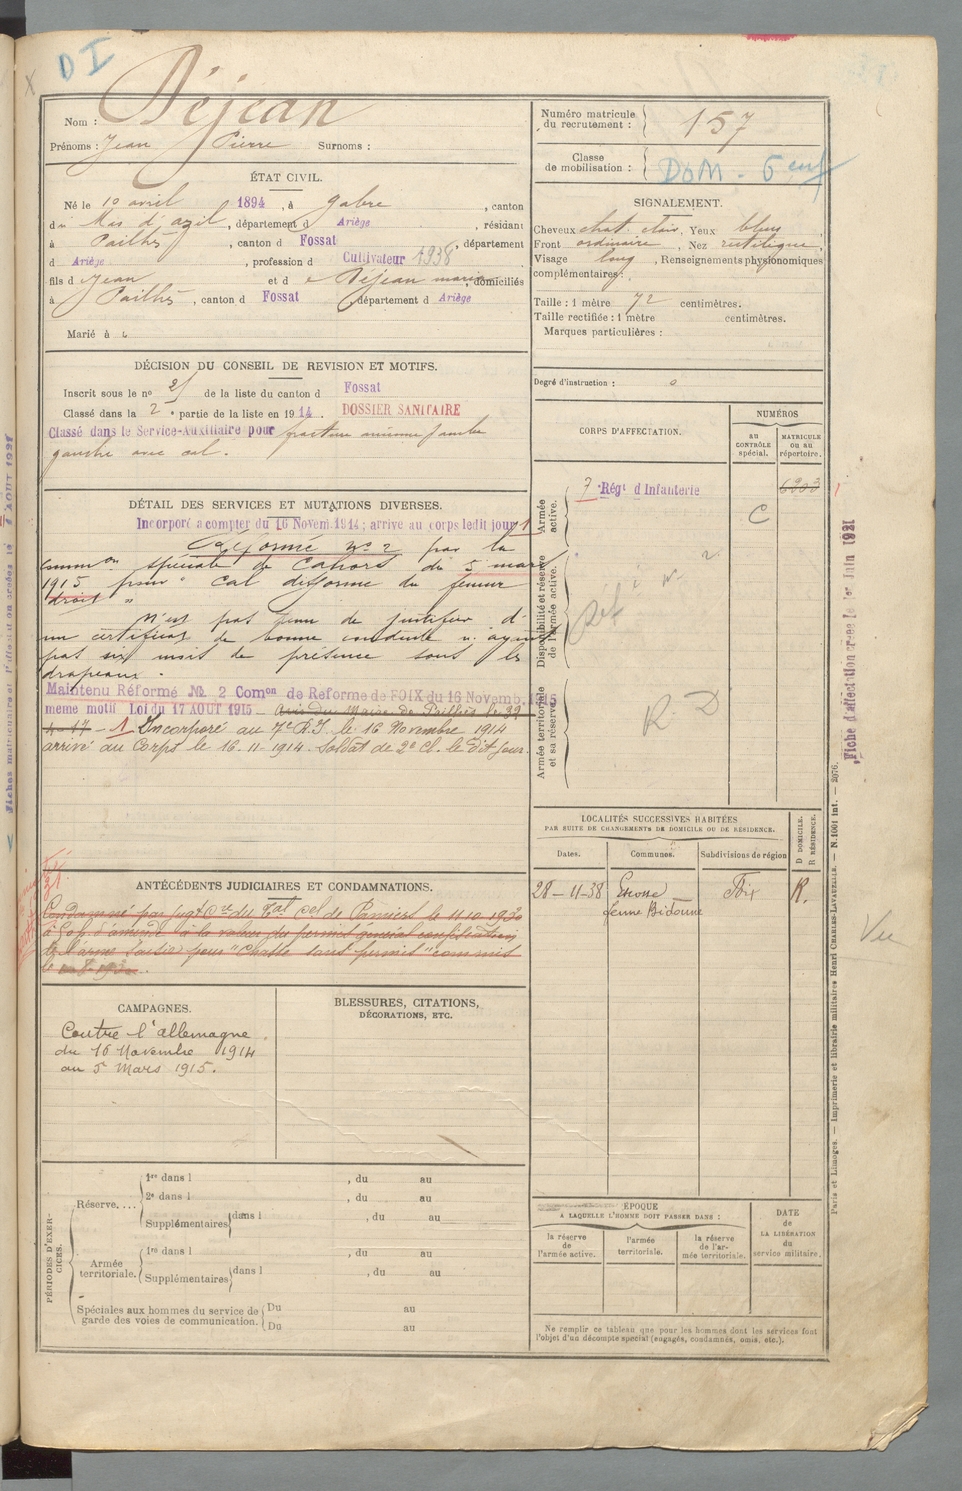 DI
Nom : Déjean
Prénoms : Jean Pierre Surnoms :
Numéro matricule du recrutement : 157
Classe de mobilisation : DOM - 6 enf
ÉTAT CIVIL.
Né le 10 avril 1894, à Gabre, canton
du Mas d'azil, département d Ariège, résidant
à Pailhès, canton d Fossat, département
d Ariège, profession d Cultivateur 1938
fils d Jean et d e Déjean marie, domiciliés
à Pailhès, canton d Fossat, département d Ariège
Marié à
SIGNALEMENT.
Cheveux chat. clair, Yeux bleus,
Front ordinaire, Nez rectiligne,
Visage long, Renseignements physionomiques
complémentaires :
Taille : 1 mètre 72 centimètres.
Taille rectifiée : 1 mètre centimètres.
Marques particulières :
Degré d'instruction :
DÉCISION DU CONSEIL DE REVISION ET MOTIFS.
Inscrit sous le no 25 de la liste du canton d Fossat
Classé dans la 2e partie de la liste en 1914. DOSSIER SANITAIRE
Classé dans le Service-Auxiliaire pour fracture ancienne jambe
gauche avec cal.
CORPS D'AFFECTATION.
NUMÉROS
AU CONTRÔLE spécial.
MATRICULE OU AU répertoire.
Armée active.
7e Régt d'Infanterie
C
Disponibilité et réserve de l'armée active.
Réf n° 2
Armée territoriale et sa réserve.
R. D
DÉTAIL DES SERVICES ET MUTATIONS DIVERSES.
Incorporé à compter du 16 Novem. 1914; arrivé au corps ledit jour 1
Réformé n° 2 par la
Common spéciale de Cahors du 5 mars
1915 pour "cal difforme du femur
droit"
N'est pas tenu de justifier d'
un certificat de bonne conduite n'ayant
pas six mois de présence sous les
drapeaux.
Maintenu Réformé No 2 Comon de Reforme de FOIX du 16 Novemb. 1915
meme motif Loi du 17 AOUT 1915 - Avis du Maire de Pailhès le 22
- 1 Incorporé au 7e R.I. le 16 Novembre 1914
arrivé au Corps le 16.11.1914. Soldat de 2e Cl. le dit jour.
LOCALITÉS SUCCESSIVES HABITÉES
PAR SUITE DE CHANGEMENTS DE DOMICILE OU DE RÉSIDENCE.
Dates.
Communes.
Subdivisions de région
D DOMICILE. R RÉSIDENCE.
28-11-38
ferme Bidoune
Foix
R.
ANTÉCÉDENTS JUDICIAIRES ET CONDAMNATIONS.
Condamné par jugt Cre du Tal cel de Pamiers le 11.10.1930
d'amende à la valeur du permis general confiscation
de l'arme saisie pour "Chasse sans permis" commis
CAMPAGNES.
Contre l'allemagne
du 16 Novembre 1914
au 5 Mars 1915.
BLESSURES, CITATIONS,
DÉCORATIONS, ETC.
PÉRIODES D'EXERCICES.
Réserve....
1re dans l , du au
2e dans l , du au
Supplémentaires dans l , du au
Armée territoriale.
1re dans l , du au
Supplémentaires dans l , du au
Spéciales aux hommes du service de garde des voies de communication.
Du au
Du au
ÉPOQUE
A LAQUELLE L'HOMME DOIT PASSER DANS :
la réserve de l'armée active.
l'armée territoriale.
la réserve de l'armée territoriale.
DATE de LA LIBÉRATION du service militaire.
Ne remplir ce tableau que pour les hommes dont les services font
l'objet d'un décompte spécial (engagés, condamnés, omis, etc.).
Fiche d'affectation créée le 1er Juin 1921
Vu
Paris et Limoges. — Imprimerie et librairie militaires Henri CHARLES-LAVAUZELLE. — N. 1001 int. — 2076.